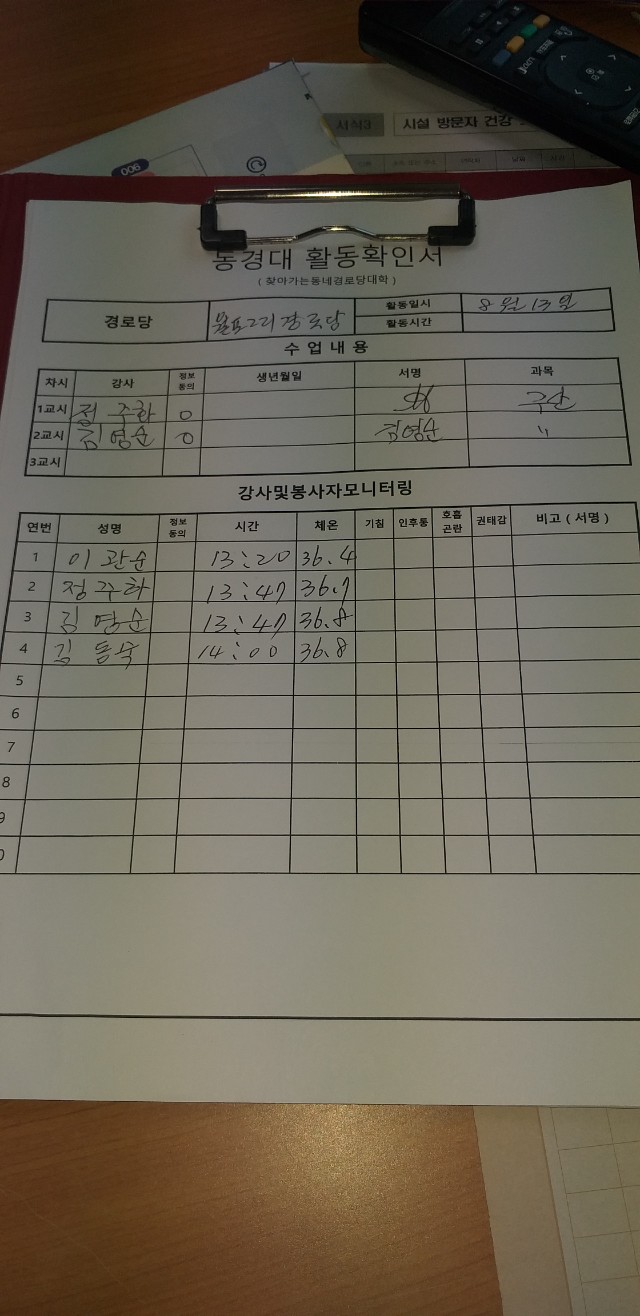 006
서식3 시설 방문자 건강
동경대 활동확인서
( 찾아가는동네경로당대학 )
경로당 경로당 활동일시 8월 13일
활동시간
수업내용
차시 강사 정보동의 생년월일 서명 과목
1교시 정주하 O
2교시 김영순 O 김영순 "
3교시
강사및봉사자모니터링
연번 성명 정보동의 시간 체온 기침 인후통 호흡곤란 권태감 비고 ( 서명 )
1 이관순 13:20 36.4
2 정주하 13:47 36.7
3 김영순 13:47 36.8
4 김동욱 14:00 36.8
5
6
7
8
9
0